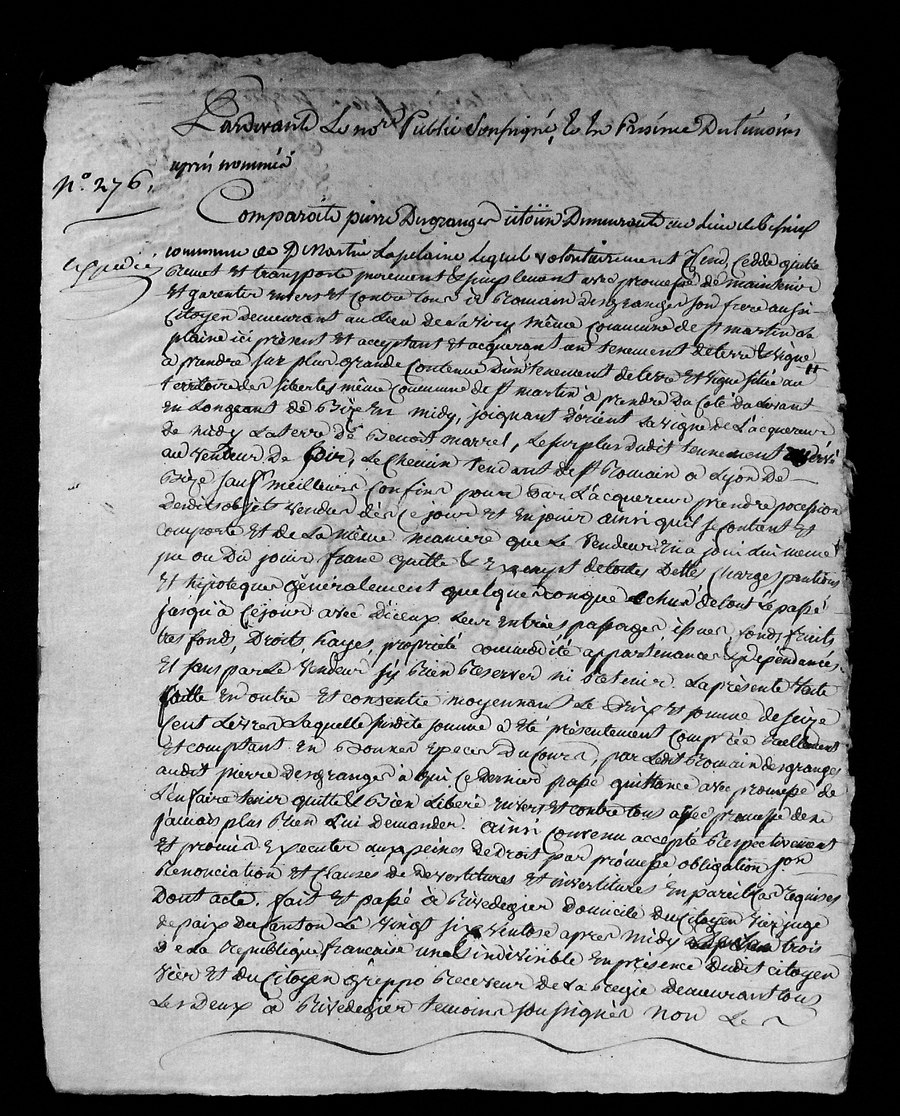 Pardevant Le no.re Public Soussigné, & En Presence Des témoins
apres nommés
N.o 276.
Comparoit pierre Desgranges citoiin Demeurant au Lieu de
commune de St Martin Laplaine Lequel volontairement Vend, Cedde quitte
Remet Et transporte purement & simplement avec promesse de maintenir
Et garentir envers Et Contre tous à Romain desgranges son frere aussi
Citoyen demeurant au Lieu de même Commune de st martin La
plaine ici présent et acceptant Et acquerant un tenement de terre & vigne
a prendre sur plus grande Contenue D'un tenement de terre Et vigne situé au
territoire des Libertes même Commune de st martin à prendre Du Coté du Levant
En Longeant de Bize En midy, joignant D'orient La vigne de L'acquereur
De midy La terre de Benoit marrel, Le surplus dudit tennement
au venteur De soir, Le Chemin tendant de st Romain a Lyon De
Bize sauf meilleurs Confins pour par L'acquereur prendre pocession
Desdits objets vendus dès Ce jour Et En jouir ainsi quil se contant Et
comporte Et de La même maniere que Le Vendeur En a joui Lui meme
pu ou Du jouir franc quitte & Exempt de toutes Dettes Charges pentions
Et hipoteque généralement quelque Conque Echus de tout Le passé
jusqu'à Cejour avec D'iceux Leur Entrées passages, issues, fonds fruits
tres fonds, Droits, hayes, propriété commodité appartenances & dépendances
Et sans par Le Vendeur s'y Rien Reserver ni Retenir. La présente Vente
faitte En outre Et consentie moyennant Le Prix Et somme de seize
Cent Livres Laquelle susdite somme a Eté présentement Comptée Réellement
Et comptant En Bonnes Epeces Du Cours, par Ledit Romain desgranges
audit pierre Desgranges à qui Ce Dernier passe quittance avec promesse de
L'en faire tenir quitte & Bien Liberé envers Et contre tous avec promesse de ne
jamais plus Rien Lui Demander. ainsi Convenu accepté Respectivement
Et promis Executer aux peines De Droit par promesse obligation son
Renonciation Et Clauses de devetitures Et investitures En pareil Cas Requises
Dont acte. fait Et passé à Rivedegier Domicile du Citoyen Vier juge
de paix Du Canton Le vingt six Ventose apres midy trois
De La Republique française une & indivisible En présence Dudit citoyen
Vier Et Du Citoyen greppo Receveur de La Regie demeurant tous
Les Deux à Rivedegier temoins soussignés non Le